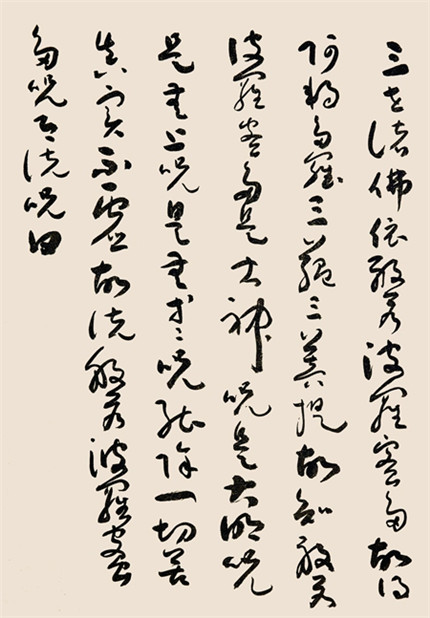 三世諸佛依般若波羅蜜多故得
阿耨多羅三藐三菩提故知般若
波羅蜜多是大神呪是大明呪
是無上呪是無等々呪能除一切苦
真實不虛故說般若波羅蜜
多呪即說呪曰